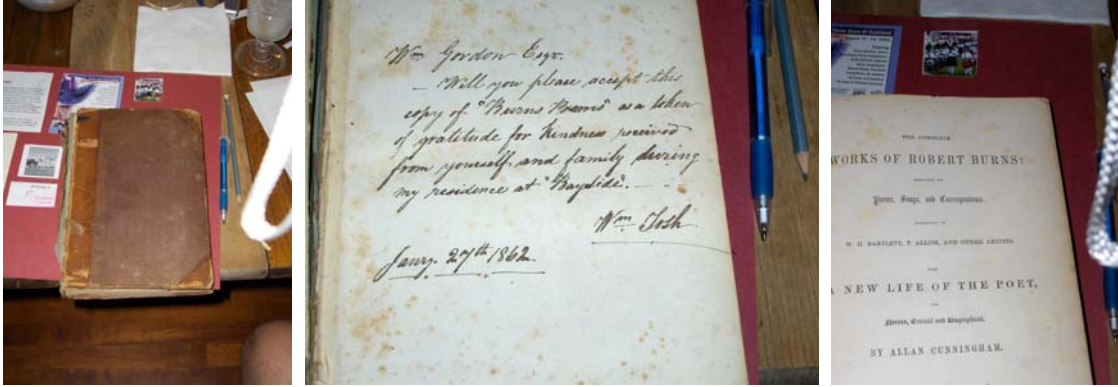 Wm Gordon Esqr.
— Will you please accept this
copy of "Burns Poems" as a token
of gratitude for kindness received
from yourself and family during
my residence at "Bayside". —
Wm Tosh
Jany. 27th 1862
THE COMPLETE
WORKS OF ROBERT BURNS:
Poems, Songs, and Correspondence.
W. H. BARTLETT, T. ALLOM, AND OTHER ARTISTS.
A NEW LIFE OF THE POET,
AND
Notices, Critical and Biographical.
BY ALLAN CUNNINGHAM.